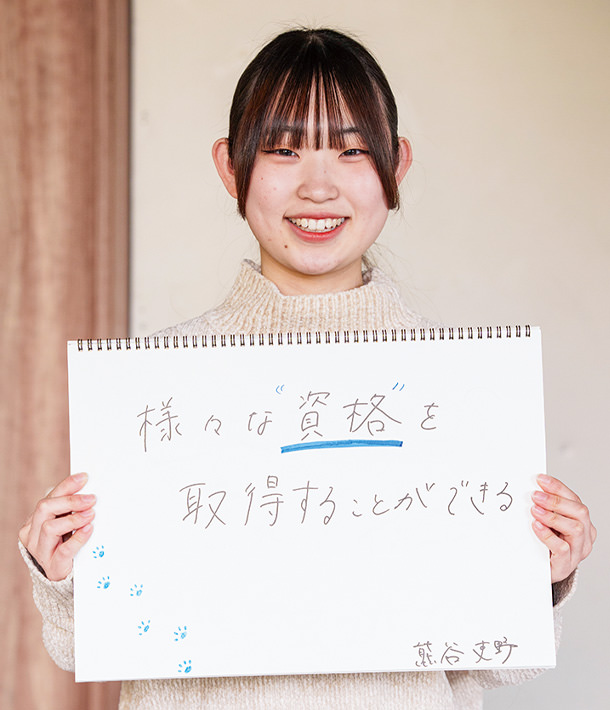 様々な“資格”を
取得することができる
熊谷吏野